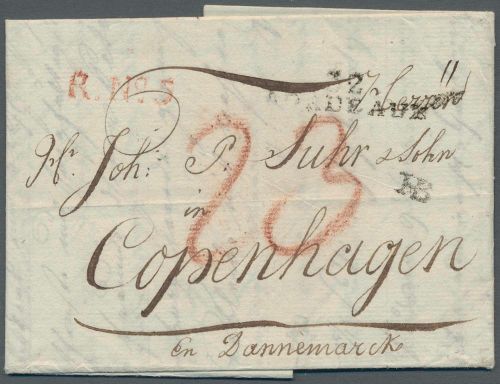 R. No. 5
32
BORDEAUX
11
Joh: P. Suhr & Sohn
23
in
HB
Copenhagen
En Dannemarck